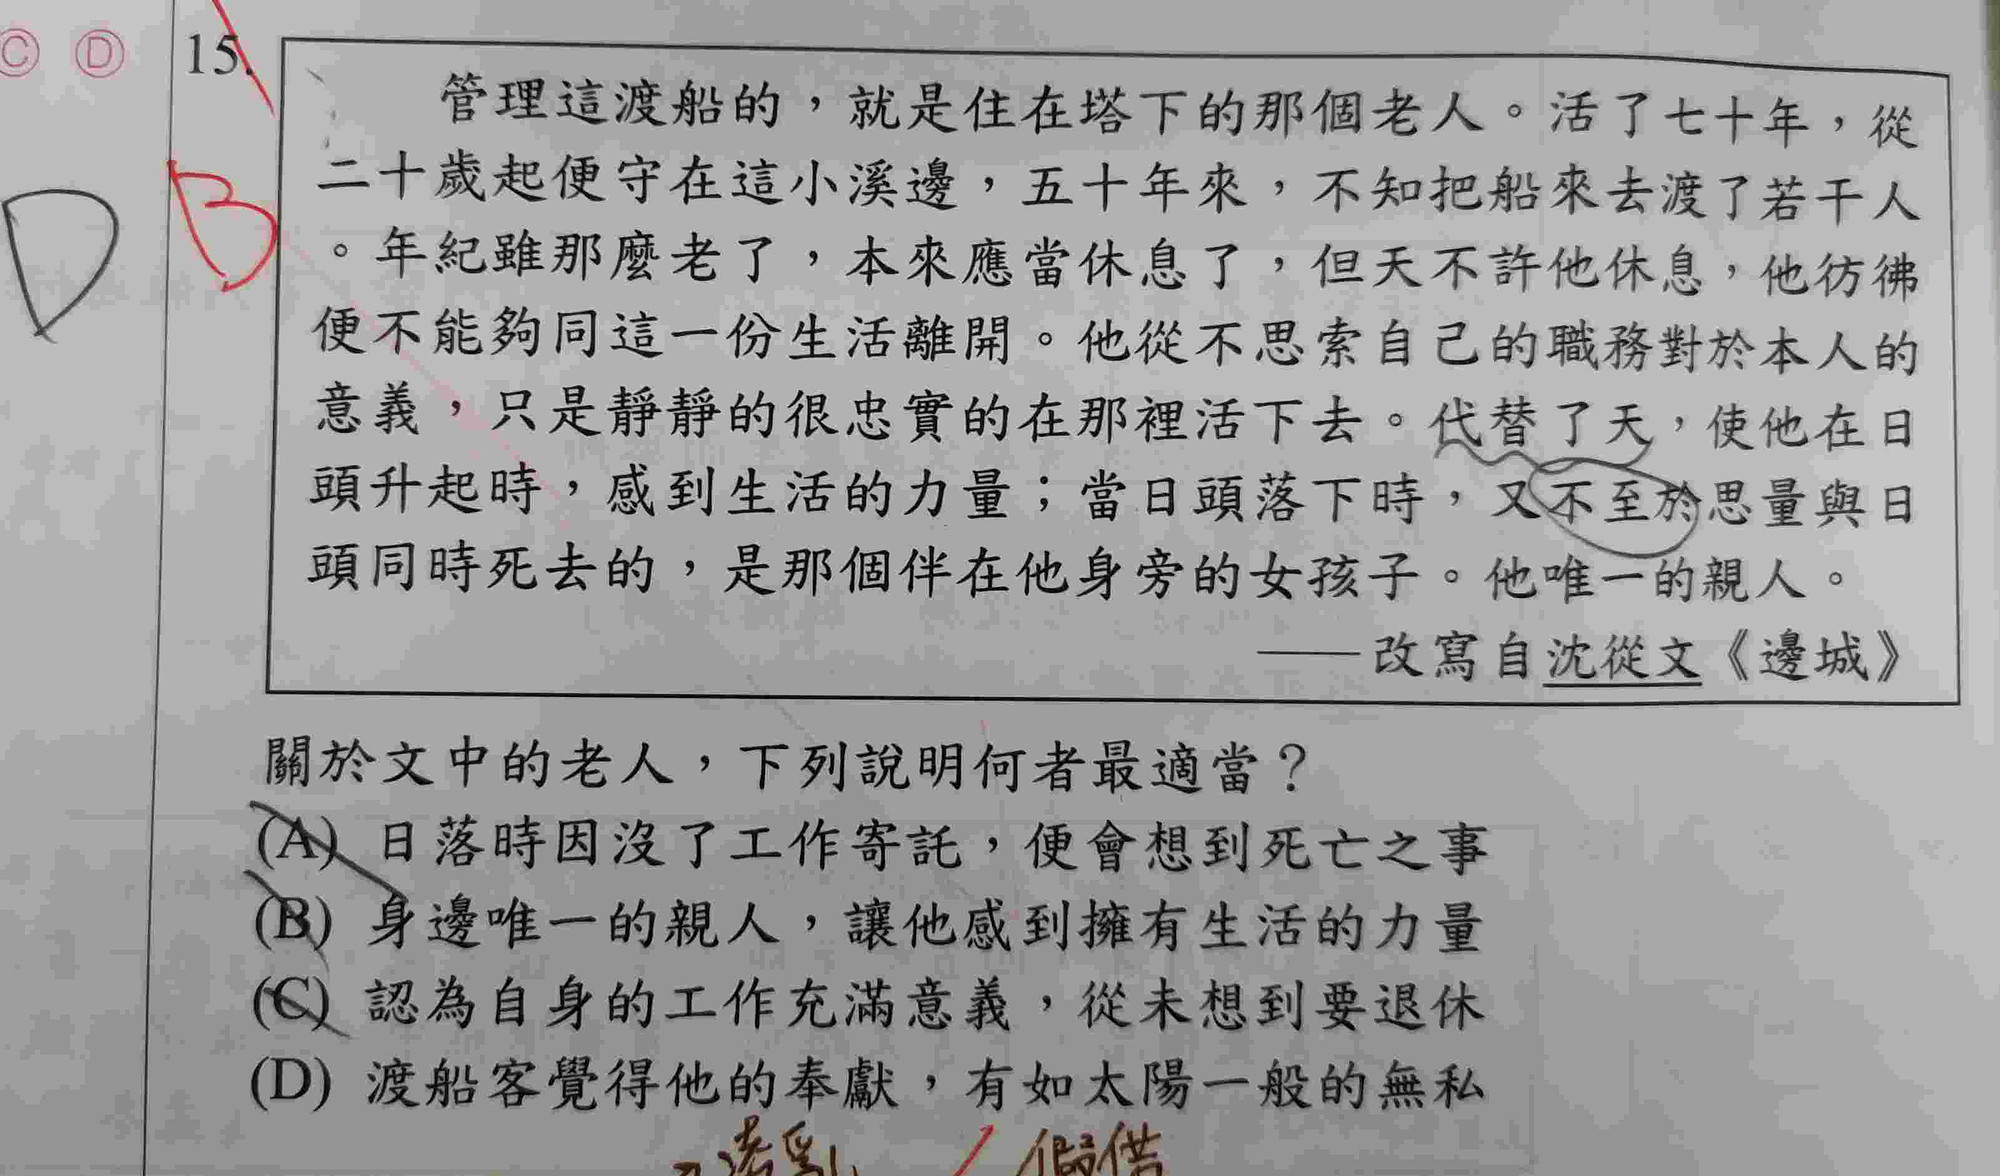 Ⓒ Ⓓ 15.
管理這渡船的，就是住在塔下的那個老人。活了七十年，從
二十歲起便守在這小溪邊，五十年來，不知把船來去渡了若干人
。年紀雖那麼老了，本來應當休息了，但天不許他休息，他彷彿
便不能夠同這一份生活離開。他從不思索自己的職務對於本人的
意義，只是靜靜的很忠實的在那裡活下去。代替了天，使他在日
頭升起時，感到生活的力量；當日頭落下時，又不至於思量與日
頭同時死去的，是那個伴在他身旁的女孩子。他唯一的親人。
——改寫自沈從文《邊城》
D B
關於文中的老人，下列說明何者最適當？
(A) 日落時因沒了工作寄託，便會想到死亡之事
(B) 身邊唯一的親人，讓他感到擁有生活的力量
(C) 認為自身的工作充滿意義，從未想到要退休
(D) 渡船客覺得他的奉獻，有如太陽一般的無私
假借